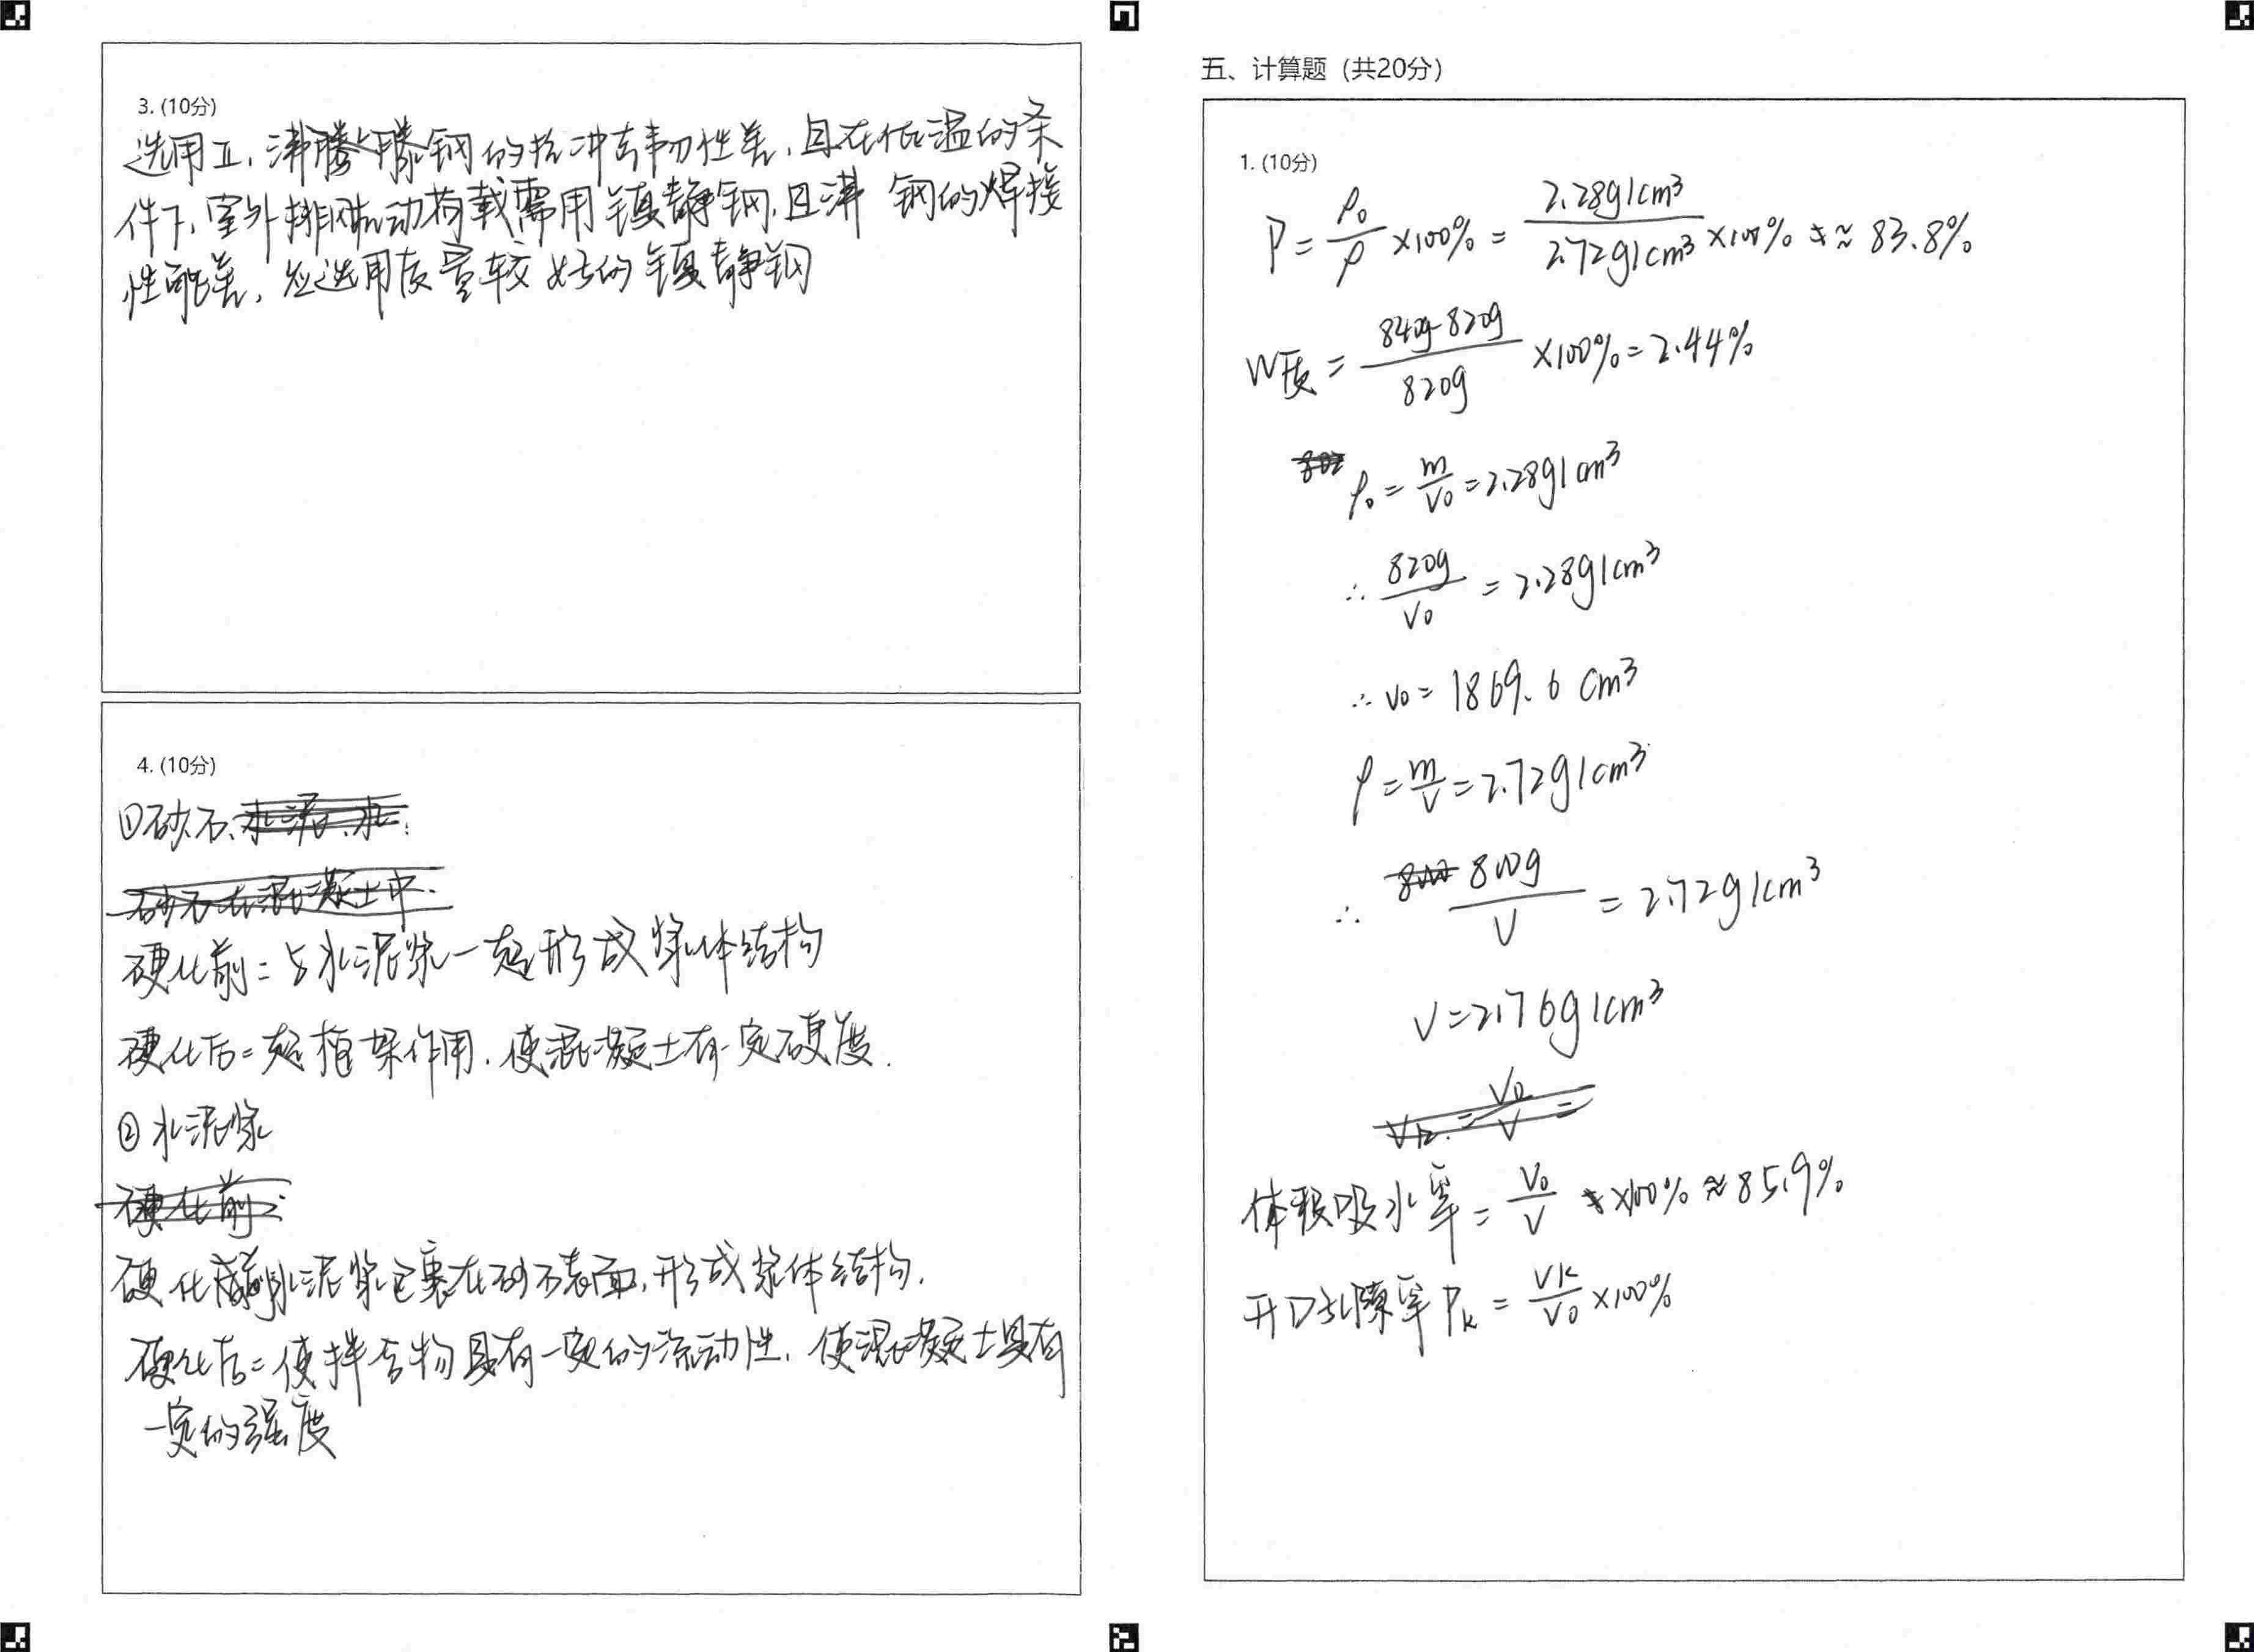 3. (10分)
选用Ⅱ,沸腾钢的抗冲击韧性差,且在低温的条
件下,室外排风机动荷载需用镇静钢,且沸 钢的焊接
性能差,应选用质量较好的镇静钢
4. (10分)
①砂石、水泥、水:
砂石在混凝土中:
硬化前:与水泥浆一起形成浆体结构
硬化后:起框架作用,使混凝土有一定硬度.
②水泥浆
硬化前:
硬化前水泥浆包裹在砂石表面,形成浆体结构.
硬化后:使拌合物具有一定的流动性,使混凝土具有
一定的强度
五、计算题 (共20分)
1. (10分)
P = ρ₀/ρ ×100% = 2.28g/cm³ / 2.72g/cm³ ×100% ≈ 83.8%
W质 = 840g-820g / 820g ×100% = 2.44%
ρ₀ = m/V₀ = 2.28g/cm³
∴ 820g/V₀ = 2.28g/cm³
∴ V₀ = 1869.6 cm³
ρ = m/V = 2.72g/cm³
∴ 800g/V = 2.72g/cm³
V = 2176g/cm³
Vk = V₀/V =
体积吸水率 = V₀/V ×100% ≈ 85.9%
开口孔隙率 Pk = Vk/V₀ ×100%